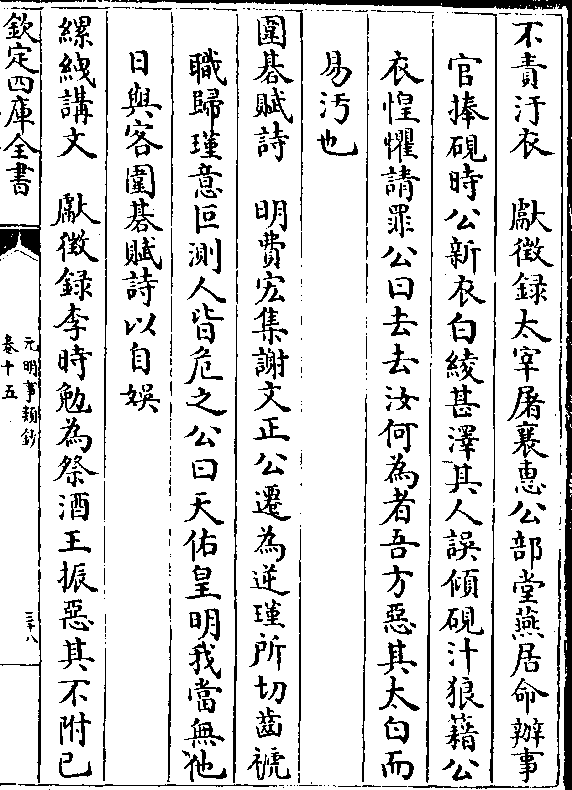 不責汙衣　獻徵録太宰屠襄惠公部堂燕居命辦事
官捧硯時公新衣白綾甚澤其人誤傾硯汁狼藉公
衣惶懼請罪公曰去去汝何為者吾方惡其太白而
易汚也
圍碁賦詩　明費宏集謝文正公遷為逆瑾所切齒褫
職歸瑾意叵測人皆危之公曰天佑皇明我當無他
日與客圍碁賦詩以自娱
縲絏講文　獻徵録李時勉為祭酒王振惡其不附已
欽定四庫全書
元明事類鈔
卷十五
三十八